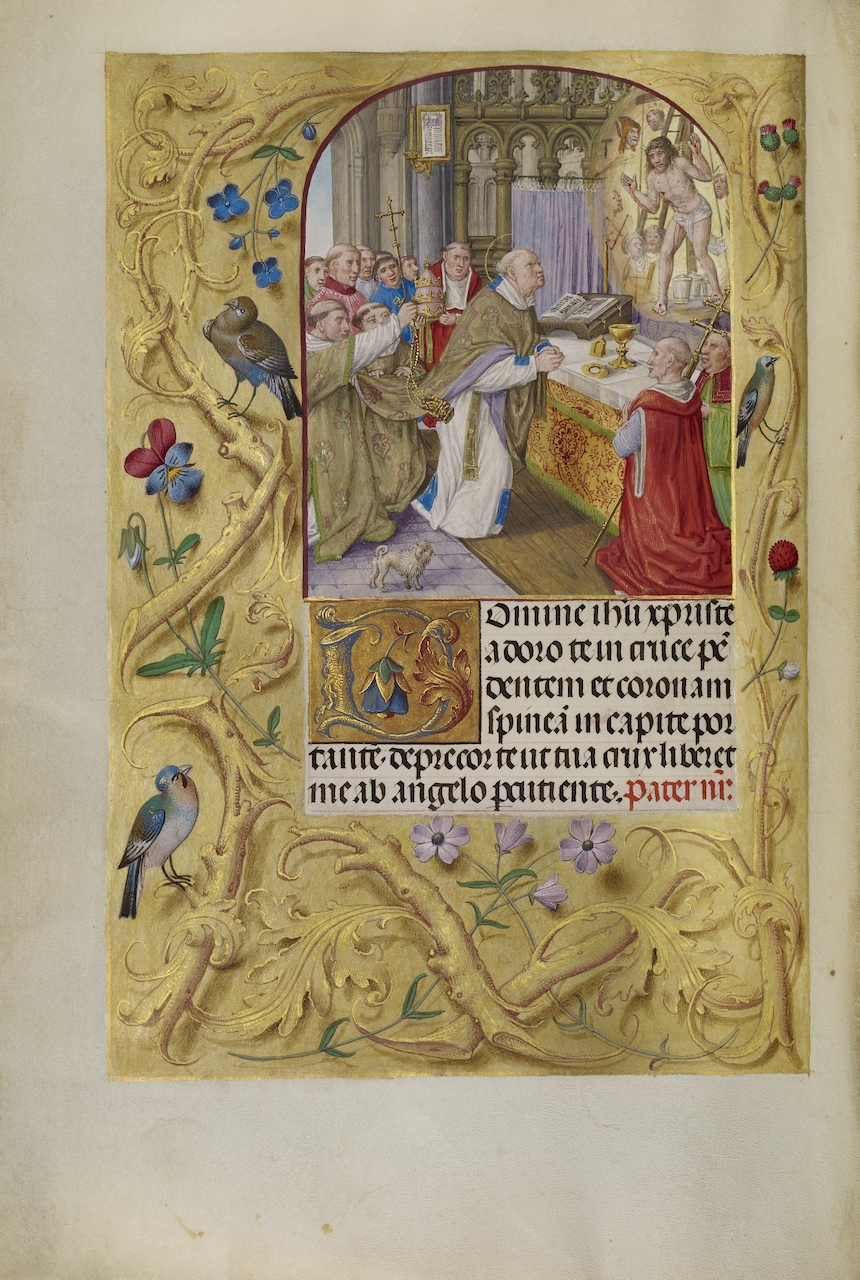 Domine ihu xpriste
adoro te in cruce pẽ
dentem et coronam
spineã in capite por
tante. deprecor te ut tua crux liberet
me ab angelo percutiente. Pater nr̃: